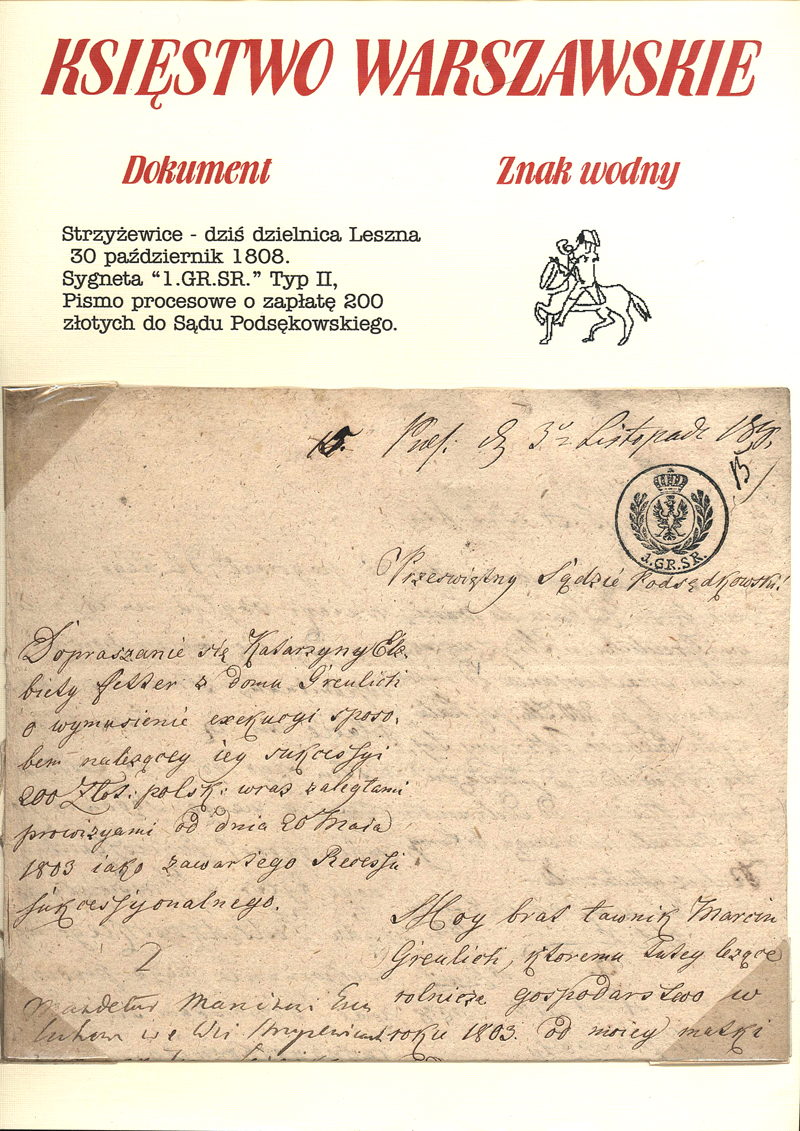 KSIĘSTWO WARSZAWSKIE
Dokument
Znak wodny
Strzyżewice - dziś dzielnica Leszna
30 październik 1808.
Sygneta “1.GR.SR.” Typ II,
Pismo procesowe o zapłatę 200
złotych do Sądu Podsękowskiego.
15.
Listopada
1.GR.SR.
Przeświętny Sądzie Podsędkowski!
Dopraszanie się Katarzyny Elż.
biety Fetter z domu Greulich
o wymusienie exekucyi sposo,
bem należącey iey sukcessyi
200 Złot: polsk: wraz zaległami
prowizyami od dnia 20 Maia
1803 iako zawartego Recessu
sukcessyonalnego.
Moy brat ławnik Marcin
Greulich, ktoremu tutey leżące
rolnicze gospodarstwo w
roku 1803. od moiey matki
2